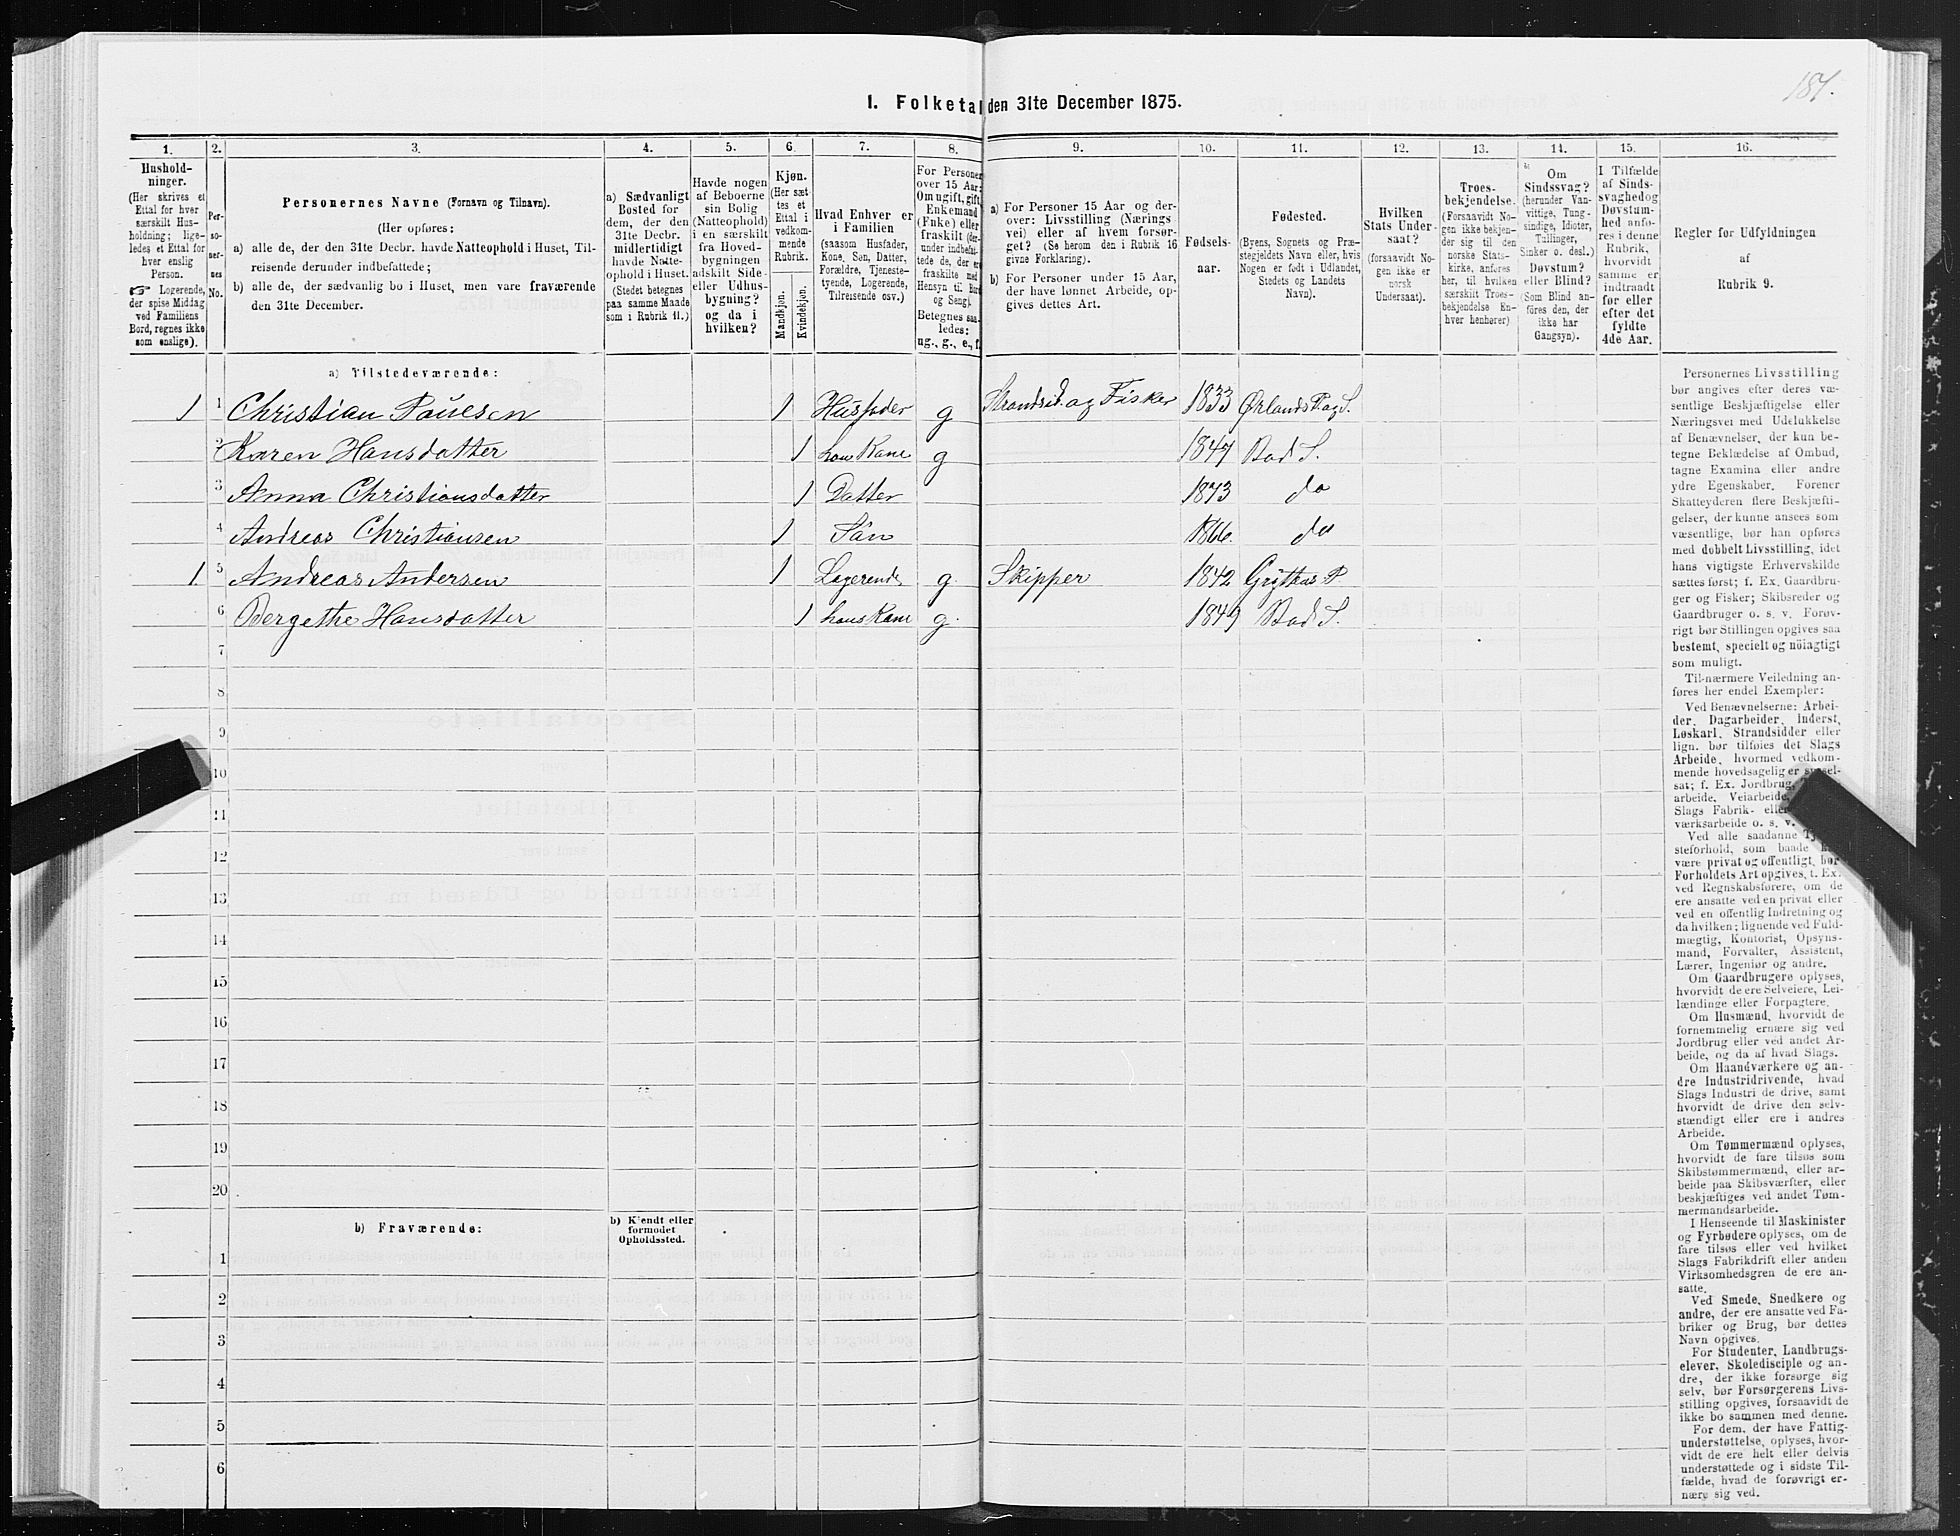 187.
I. Folketal den 31te December 1875.
1. 2. 3. 4. 5. 6. 7. 8. 9. 10. 11. 12. 13. 14. 15. 16.
Husholdninger.
(Her skrives et
Ettal for hver
særskilt Husholdning; ligeledes
et Ettal for
hver enslig
Person.
☞ Logerende,
der spise Middag
ved Familiens
Bord, regnes ikke
som enslige).
Personernes No.
Personernes Navne (Fornavn og Tilnavn).
(Her opføres:
a) alle de, der den 31te Decbr. havde Natteophold i Huset, Tilreisende derunder indbefattede;
b) alle de, der sædvanlig bo i Huset, men vare fraværende
den 31te December.
a) Sædvanligt
Bosted for
dem, der den
31te Decbr.
midlertidigt
havde Natteophold i Huset.
(Stedet betegnes
paa samme Maade
som i Rubrik 11.)
Havde nogen
af Beboerne
sin Bolig
(Natteophold)
i en særskilt
fra Hovedbygningen
adskilt Side-
eller Udhusbygning?
og da i
hvilken?
Kjøn.
(Her sættes et
Ettal i
vedkommende
Rubrik.
Mandkjøn.
Kvindekjøn.
Hvad Enhver er
i Familien
(saasom Husfader,
Kone, Søn, Datter,
Forældre, Tjenestetyende, Logerende,
Tilreisende osv.)
For Personer
over 15 Aar:
Om ugift, gift,
Enkemand
(Enke) eller
fraskilt (derunder indbefattede de, der ere
fraskilte med
Hensyn til Bord
og Seng).
Betegnes saaledes:
ug., g., e., f.
a) For Personer 15 Aar og derover: Livsstilling (Næringsvei) eller af hvem forsørget? (Se herom den i Rubrik 16
givne Forklaring).
b) For Personer under 15 Aar,
der have lønnet Arbeide, opgives dettes Art.
Fødselsaar.
Fødested.
(Byens, Sognets og Præstegjeldets Navn eller, hvis
Nogen er født i Udlandet,
Stedets og Landets
Navn).
Hvilken
Stats Undersaat?
(forsaavidt Nogen ikke er
norsk
Undersaat).
Troesbekjendelse.
(Forsaavidt Nogen ikke bekjender sig til den
norske Statskirke, anføres
her, til hvilken
særskilt Troesbekjendelse Enhver henhører)
Om
Sindssvag?
(herunder Vanvittige, Tungsindige, Idioter,
Tullinger,
Sinker o. desl.)
Døvstum?
eller Blind?
(Som Blind anføres den, der
ikke har
Gangsyn).
I Tilfælde
af Sindssvaghed og
Døvstumhed anføres i denne
Rubrik,
hvorvidt
samme er
indtraadt
før eller
efter det
fyldte
4de Aar.
Regler for Udfyldningen
af
Rubrik 9.
a) Tilstedeværende:
1 1 Christian Paulsen 1 Husfader g Strandsid. og Fisker 1833 Ørlands P. og S.
2 Karen Hansdatter 1 hans Kone g 1847 Bod S.
3 Anna Christiansdatter 1 Datter 1873 do
4 Andreas Christiansen 1 Søn 1866. do
1. 5 Andreas Andersen 1 Logerende g. Skipper 1842 Grytkas P
6 Bergethe Hansdatter 1 hans Kone g. 1849 Bod S.
7
8
9
10
11
12
13
14
15
16
17
18
19
20
b) Fraværende:
b) Kjendt eller
formodet
Opholdssted.
1
2
3
4
5
6
Personernes Livsstilling
bør angives efter deres væsentlige Beskjæftigelse eller
Næringsvei med Udelukkelse
af Benævnelser, der kun betegne Beklædelse af Ombud,
tagne Examina eller andre
ydre Egenskaber. Forener
Skatteyderen flere Beskjæftigelser, der kunne ansees som
væsentlige, bør han opføres
med dobbelt Livsstilling, idet
hans vigtigste Erhvervskilde
sættes først; f. Ex. Gaardbruger og Fisker; Skibsreder og
Gaardbruger o. s. v. Forøvrigt bør Stillingen opgives saa
bestemt, specielt og nöiagtigt
som muligt.
Til nærmere Veiledning anføres her endel Exempler:
Ved Benævnelserne: Arbeider, Dagarbeider, Inderst,
Løskarl, Strandsidder eller
lign. bør tilføies det Slags
Arbeide, hvormed vedkommende hovedsagelig er syssel-
sat; f. Ex. Jordbrug,
arbeide, Veiarbeide,
Slags Fabrik- eller
værksarbeide o. s. v.
Ved alle saadanne
steforhold, som baade
være privat og offentligt, bør
Forholdets Art opgives, t. Ex.
ved Regnskabsførere, om de
ere ansatte ved en privat eller
ved en offentlig Indretning og
da hvilken; lignende ved Fuldmægtig, Kontorist, Opsynsmand, Forvalter, Assistent,
Lærer, Ingeniør og andre.
Om Gaardbrugere oplyses,
hvorvidt de ere Selveiere, Leilændinge eller Forpagtere.
Om Husmænd, hvorvidt de
fornemmelig ernære sig ved
Jordbrug eller ved andet Arbeide, og da af hvad Slags.
Om Haandværkere og andre Industridrivende, hvad
Slags Industri de drive, samt
hvorvidt de drive den selvstændigt eller ere i andres
Arbeide.
Om Tømmermænd oplyses,
hvorvidt de fare tilsøs som
Skibstømmermænd, eller arbeide paa Skibsværfter, eller
beskjæftiges ved andet Tømmermandsarbeide.
I Henseende til Maskinister
og Fyrbødere oplyses, om de
fare tilsøs eller ved hvilket
Slags Fabrikdrift eller anden
Virksomhedsgren de ere ansatte.
Ved Smede, Snedkere og
andre, der ere ansatte ved Fabriker og Brug, bør dettes
Navn opgives.
For Studenter, Landbrugselever, Skoledisciple og andre, der ikke forsørge sig
selv, bør Forsørgerens Livsstilling opgives, forsaavidt de
ikke bo sammen med denne.
For dem, der have Fattigunderstøttelse, oplyses, hvorvidt de ere helt eller delvis
understøttede og i sidste Tilfælde, hvad de forøvrigt ernære sig ved.